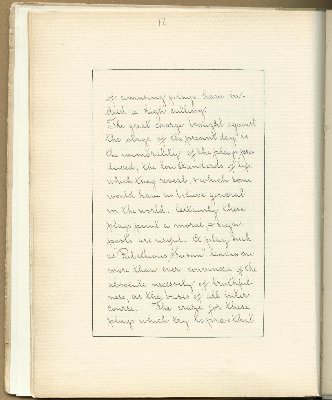 12
of amusing plays have in-
deed a high calling.
The great charge brought against
the stage of the present day is
the immorality of the plays pro-
duced, the low standards of life
which they reveal, & which some
would have us believe general
in the world. Certainly these
plays paint a moral, & sign
posts are useful. A play such
as Rebellious Susan leaves one
more than ever convinced of the
absolute necessity of truthful-
ness, as the basis of all inter-
course. The craze for these
plays which try to prove that